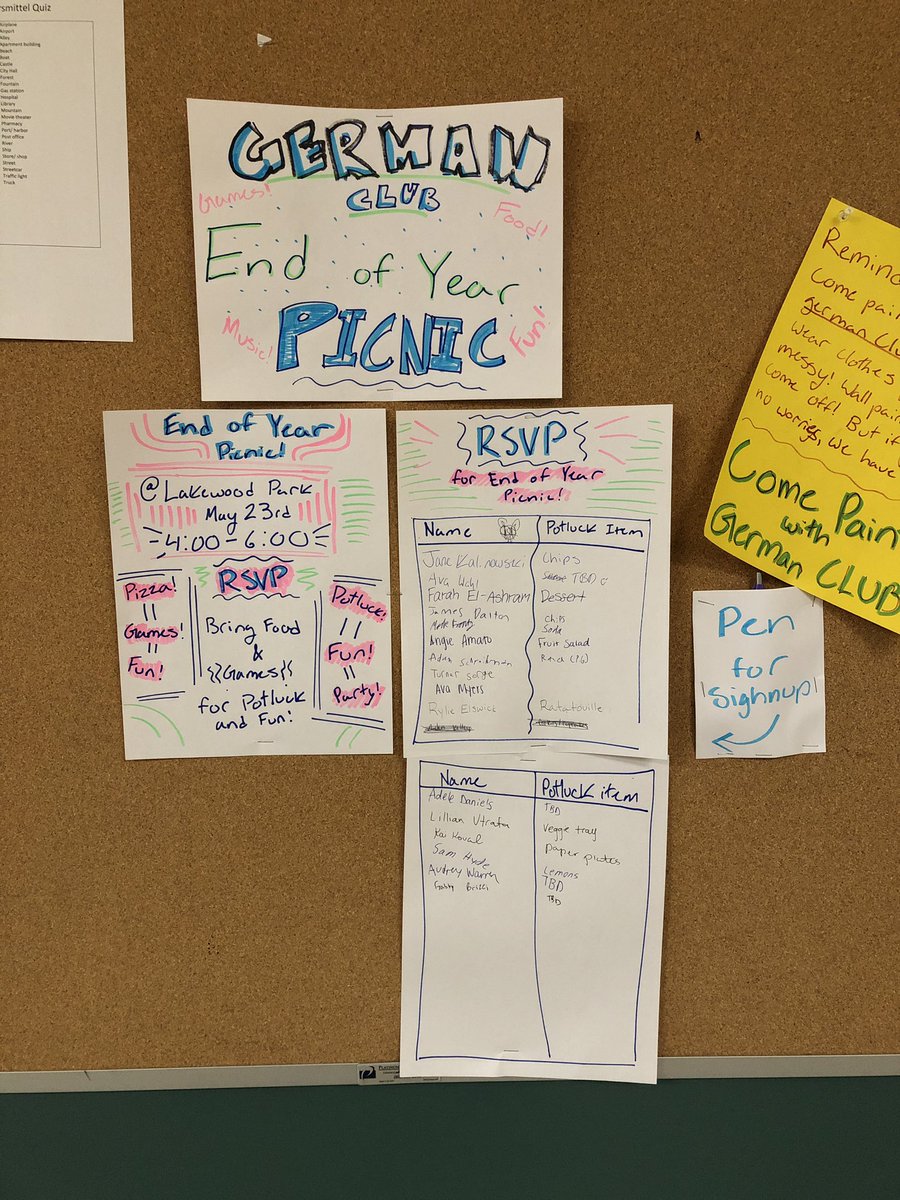 rsmittel Quiz
Airplane
Airport
Alley
Apartment building
Beach
Boat
Castle
City Hall
Forest
Fountain
Gas station
Hospital
Library
Mountain
Movie theater
Pharmacy
Port/ harbor
Post office
River
Ship
Store/ shop
Street
Streetcar
Traffic light
Truck
GERMAN
CLUB
Games!
Food!
End of Year
Music!
PICNIC
Fun!
End of Year
Picnic!
@ Lakewood Park
May 23rd
4:00-6:00
RSVP
Pizza!
Games!
Fun!
Bring Food
&
{{Games}}
for Potluck
and Fun!
Potluck!
Fun!
Party!
RSVP
for End of Year
Picnic!
Name Potluck Item
Jane Kalinowski Chips
Ava Wahl TBD
Farah El-Ashram Dessert
James Dalton Chips
Soda
Angie Amato Fruit Salad
Adan
Turner Sorge
Ava Myers
Rylie Elswick Ratatouille
Name Potluck item
Adele Daniels TBD
Lillian Utrata Veggie tray
Kai paper plates
Sam Hyde Lemons
Audrey Warren TBD
Gabby TBD
Remin
Come pain
german Clu
Wear clothes
messy! Wall pain
come off! But if
no worries, we have
Come Pain
with
German CLUB
Pen
for
sighnup